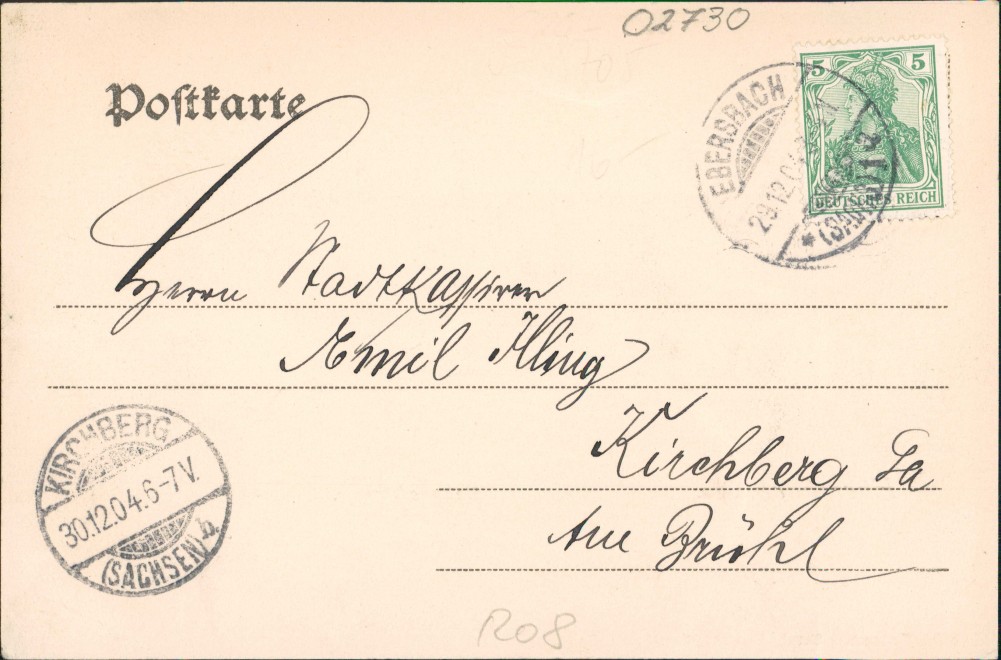 02730
Postkarte
5 5
DEUTSCHES REICH
EBERSBACH
29.12.04
* (SACHSEN)
Herrn Stadtkassirer
Emil Illing
Kirchberg Sa
Am Brühl
KIRCHBERG
30.12.04.6-7V.
(SACHSEN) b.
R08